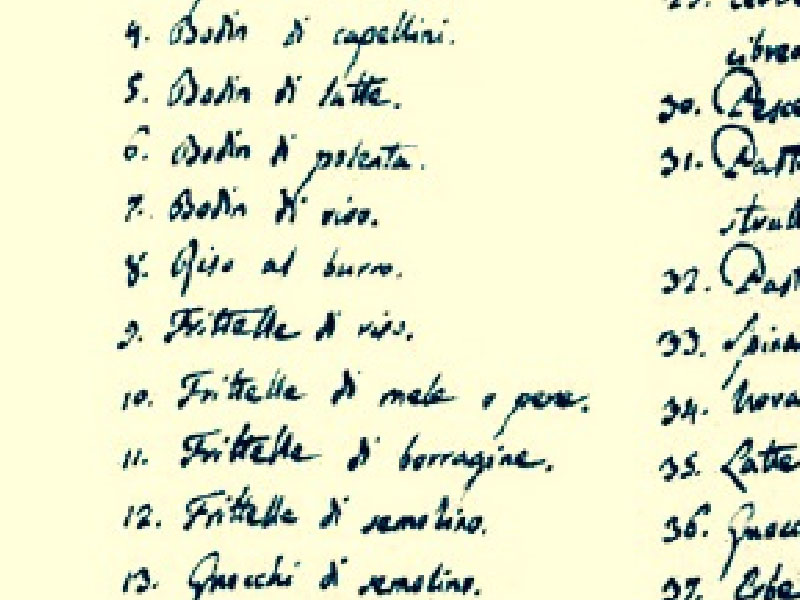 4. Bodin di capellini.
5. Bodin di latte.
6. Bodin di polenta.
7. Bodin di riso.
8. Riso al burro.
9. Frittelle di riso.
10. Frittelle di mele o pere.
11. Frittelle di borragine.
12. Frittelle di semolino.
13. Gnocchi di semolino.
30.
31.
32.
33.
34.
35. Latte
36.
37. Erbe